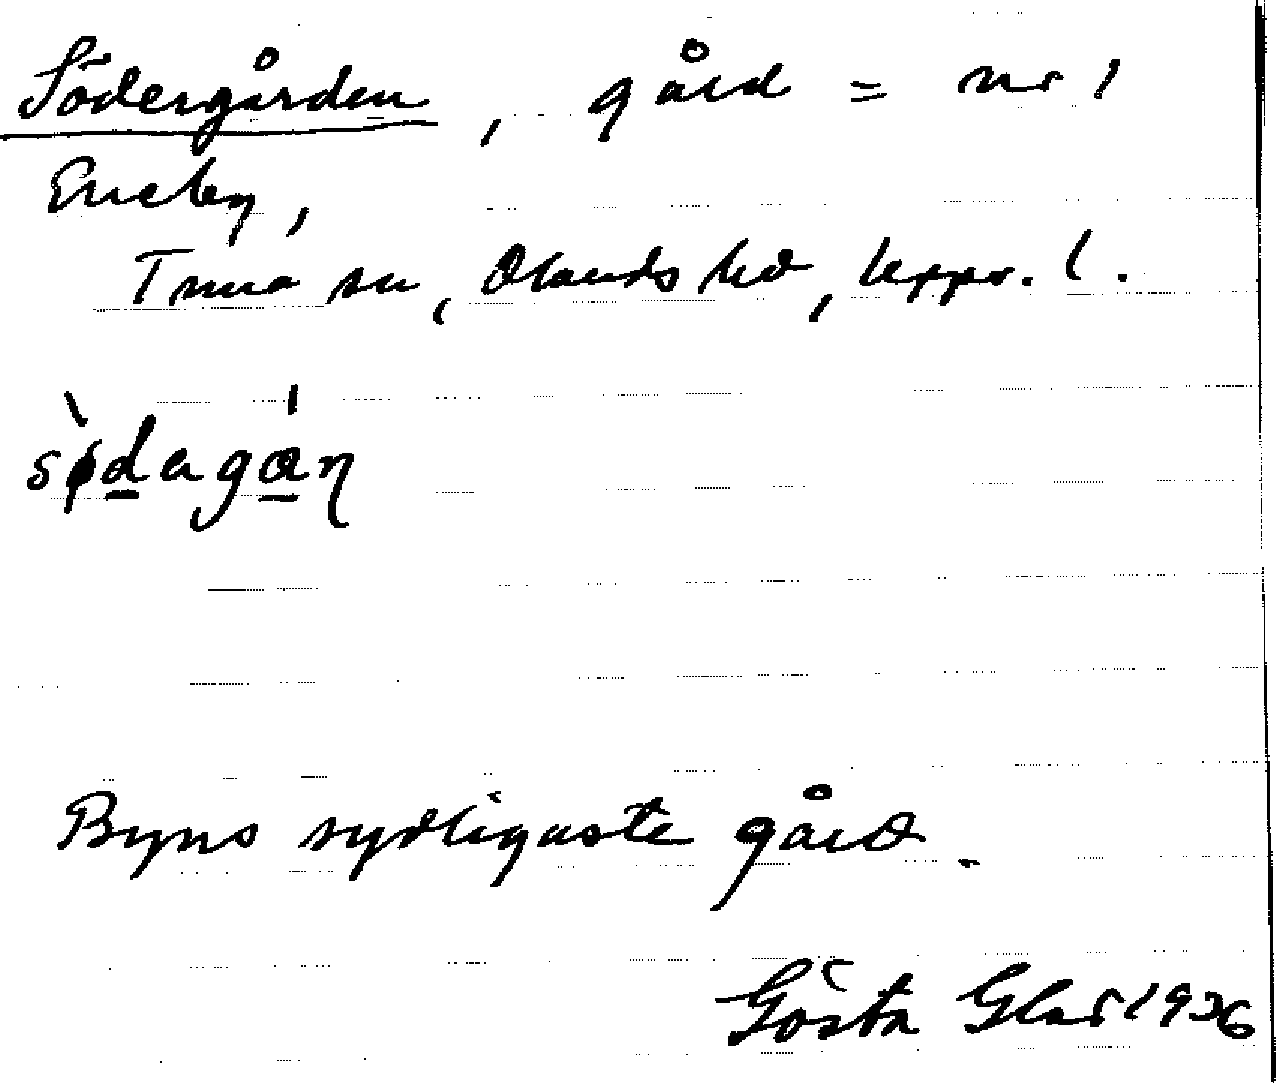 Södergården, gård = nr 1
Eneby,
Tuna sn, Olands hd, Upps. l.
sǿdagán
Byns sydligaste gård.
Gösta Glas 1936